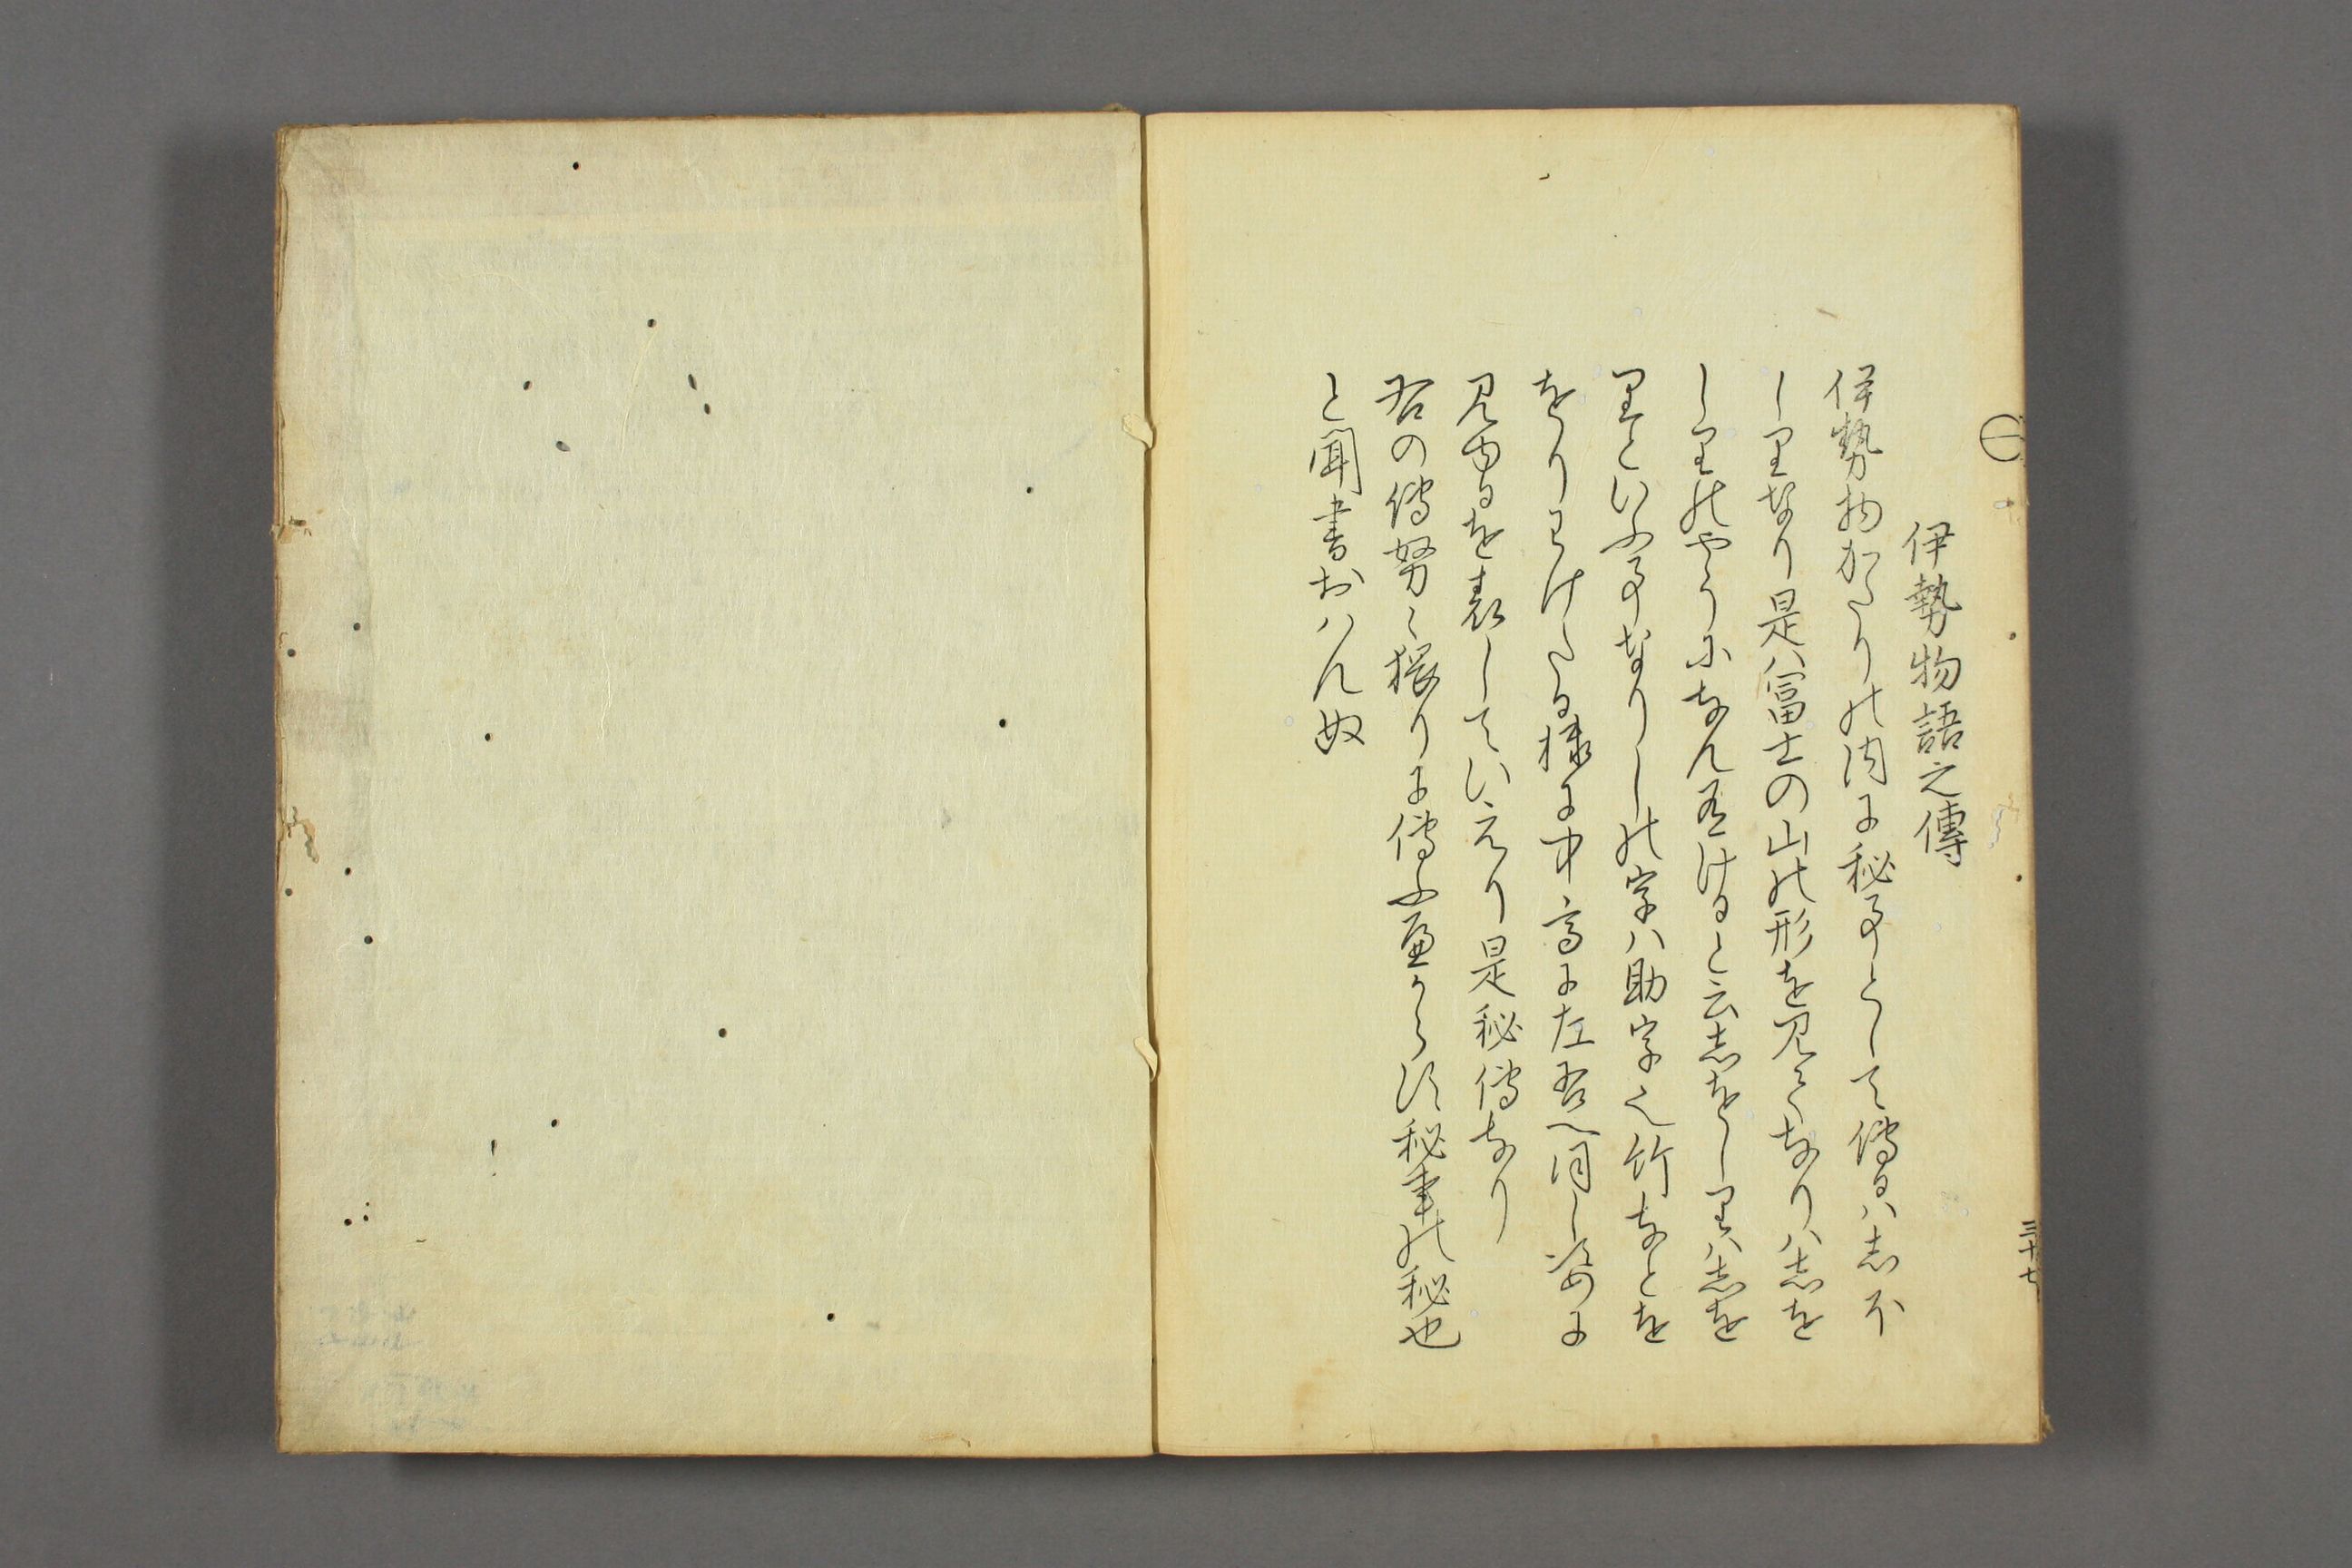 伊勢物語之傳
伊勢物かたりの内に秘事として傳るハ志ほ
しりなり是ハ富士の山の形を見てなりハ志を
しりのやうになん有けると云志をしりハ志を
りといふ事なりしの字ハ助字也竹なとを
をりわけたる様に中高に左右へ同し姿に
見ゆるを表していえり是秘傳なり
右の傳努々猥りに傳ふ庭からす秘事の秘也
と聞書おハんぬ
三十七